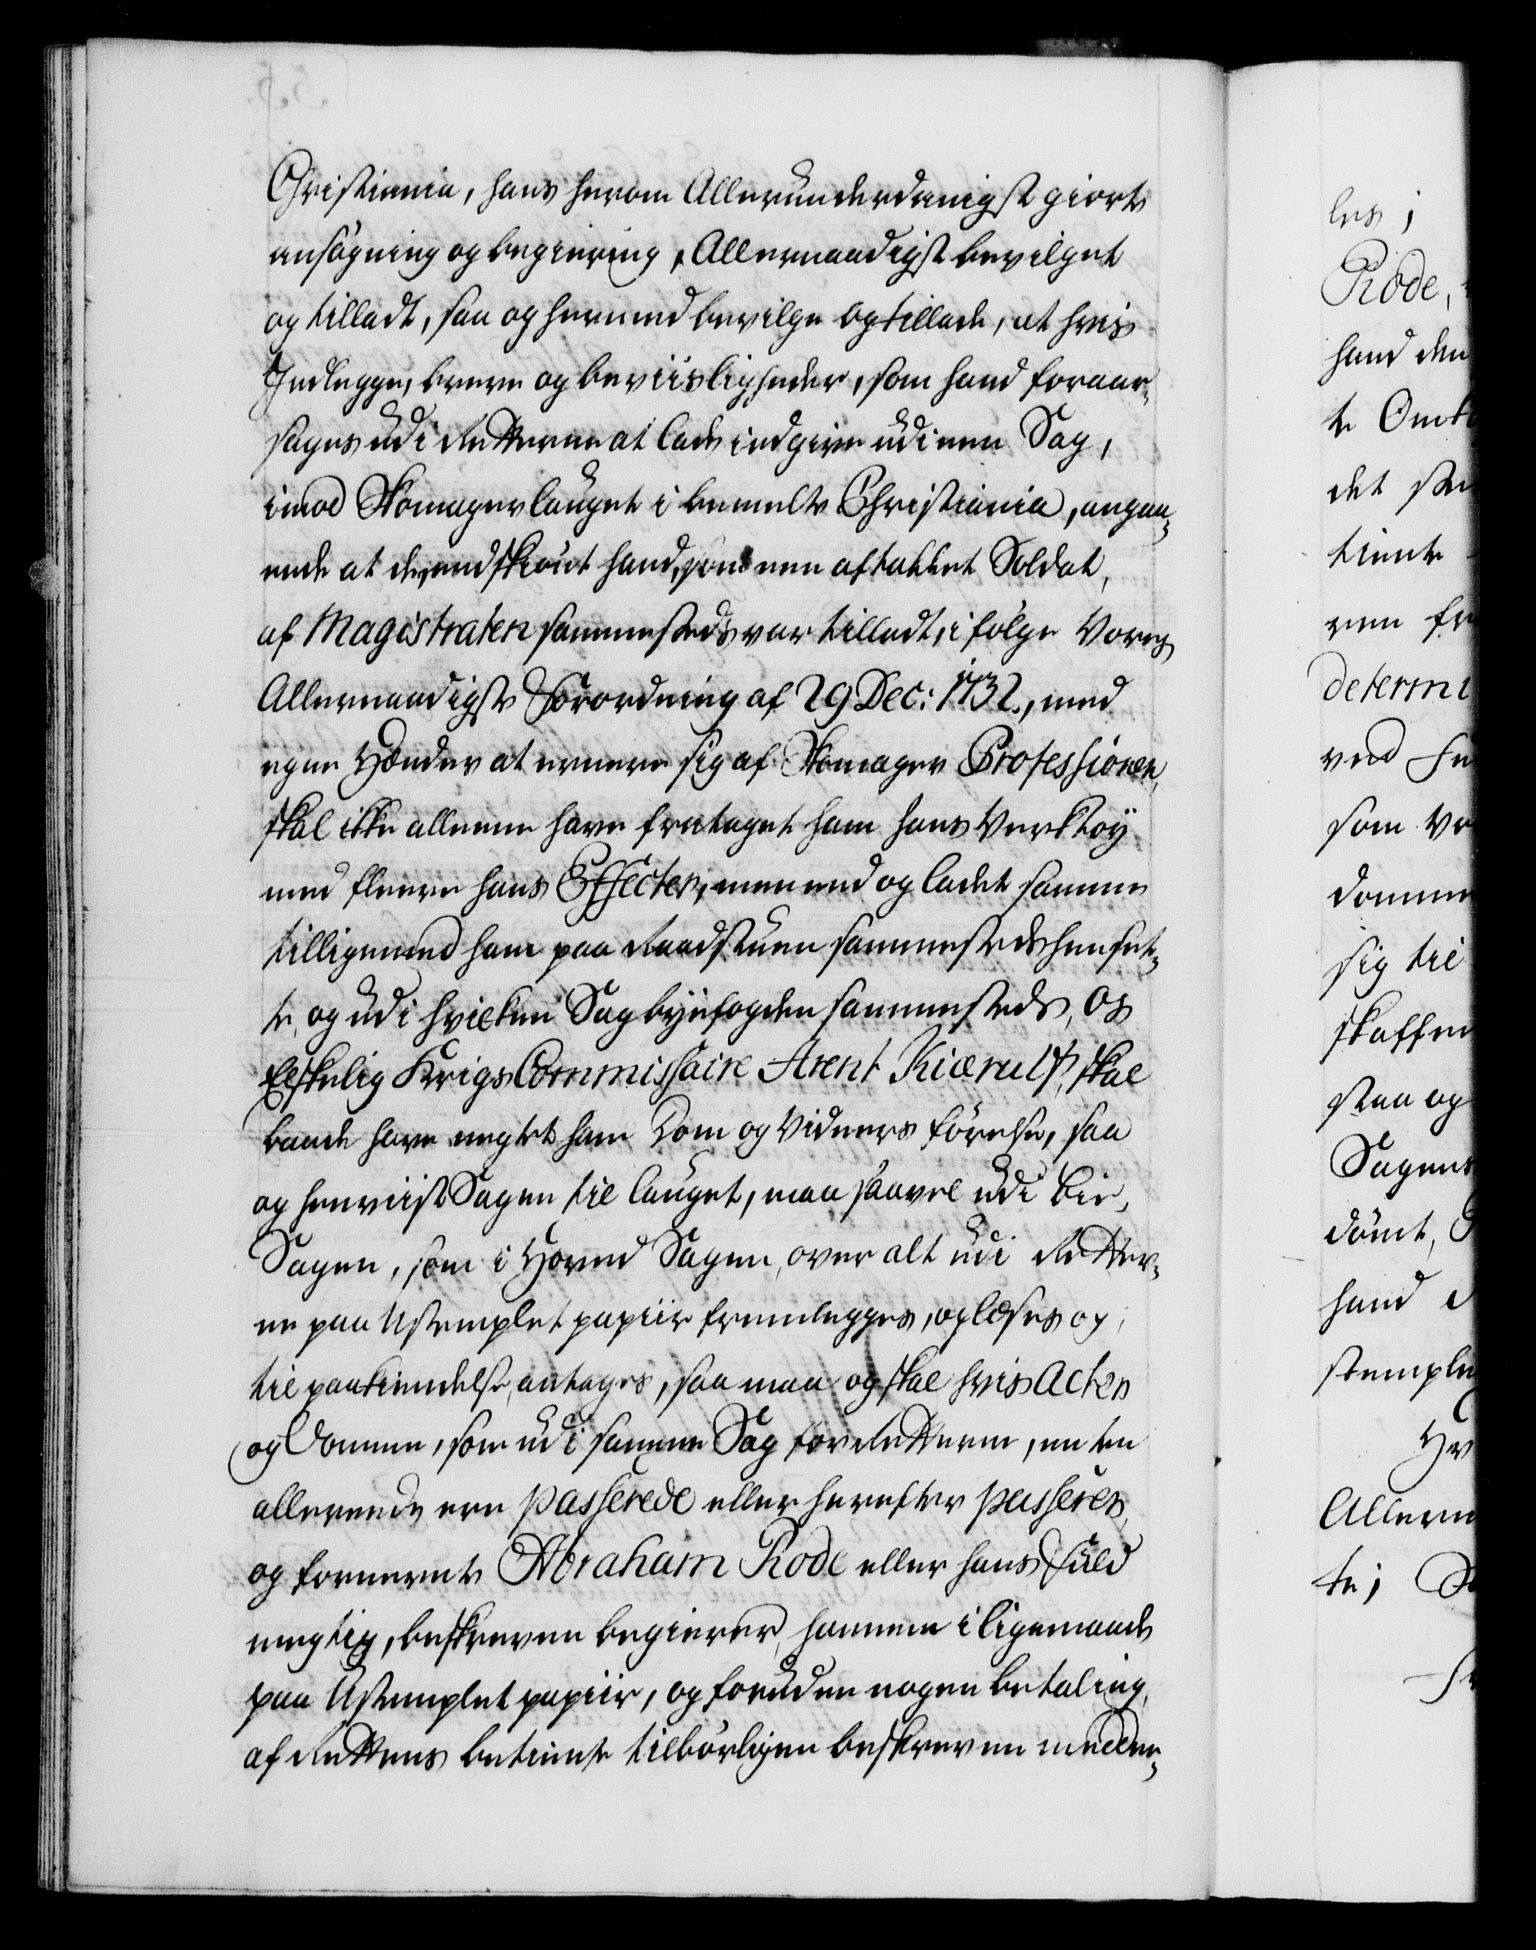 Christiania, hans herom Allerunderdanigst giorte
ansøgning og begiering, Allernaadigst bevilget
og tilladt, saa og hermed bevilge og tillade, at hvis
Indlegge, breve og beviisligheder, som hand foraar-
sages udi Retterne at lade indgive udi een Sag,
imod Skomager lauget i bemelte Christiania, angaa-
ende at de, endskiønt hand, som een aftakket Soldat,
af Magistraten sammesteds var tilladt, i følge Vores
Allernaadigste Forordning af 29 Dec: 1732., med
egne Hænder at ernere sig af Skomager Professionen,
skal ikke alleene have frataget ham hans Verktøÿ
med fleere hans Effecter, men end og ladet samme
tilligemed ham paa Raadstuen sammesteds hensæt-
te, og udi hvilken Sag byefogden sammesteds, Os
Elskelig Krigs Commissaire Arent Kiærulf, skal
baade have negtet ham Dom og Vidners førelse, saa
og henviist Sagen til lauget, maa saavel udi Bie-
Sagen, som i Hoved Sagen, over alt udi Retter-
ne paa Ustemplet papiir fremlegges, oplæses og
til paakiendelse, antages, saa maa og skal hvis Acter
og Domme, som udi samme Sag for Retterne, enten
allereede ere passerede eller herefter passerer,
og forneevnte Abraham Rode eller hans Fuld
megtig, beskreven begierer, hannem i ligemaade
paa Ustemplet papiir, og foruden nogen betaling,
af Rettens betiente tilbørligen beskreven meddee-
les;
Rode,
hand den
te
det
tiente
ren
determi
ved
som
domme
sig til
skaffe
staa og
Sagens
dømt,
hand
stemple
Allern
te;